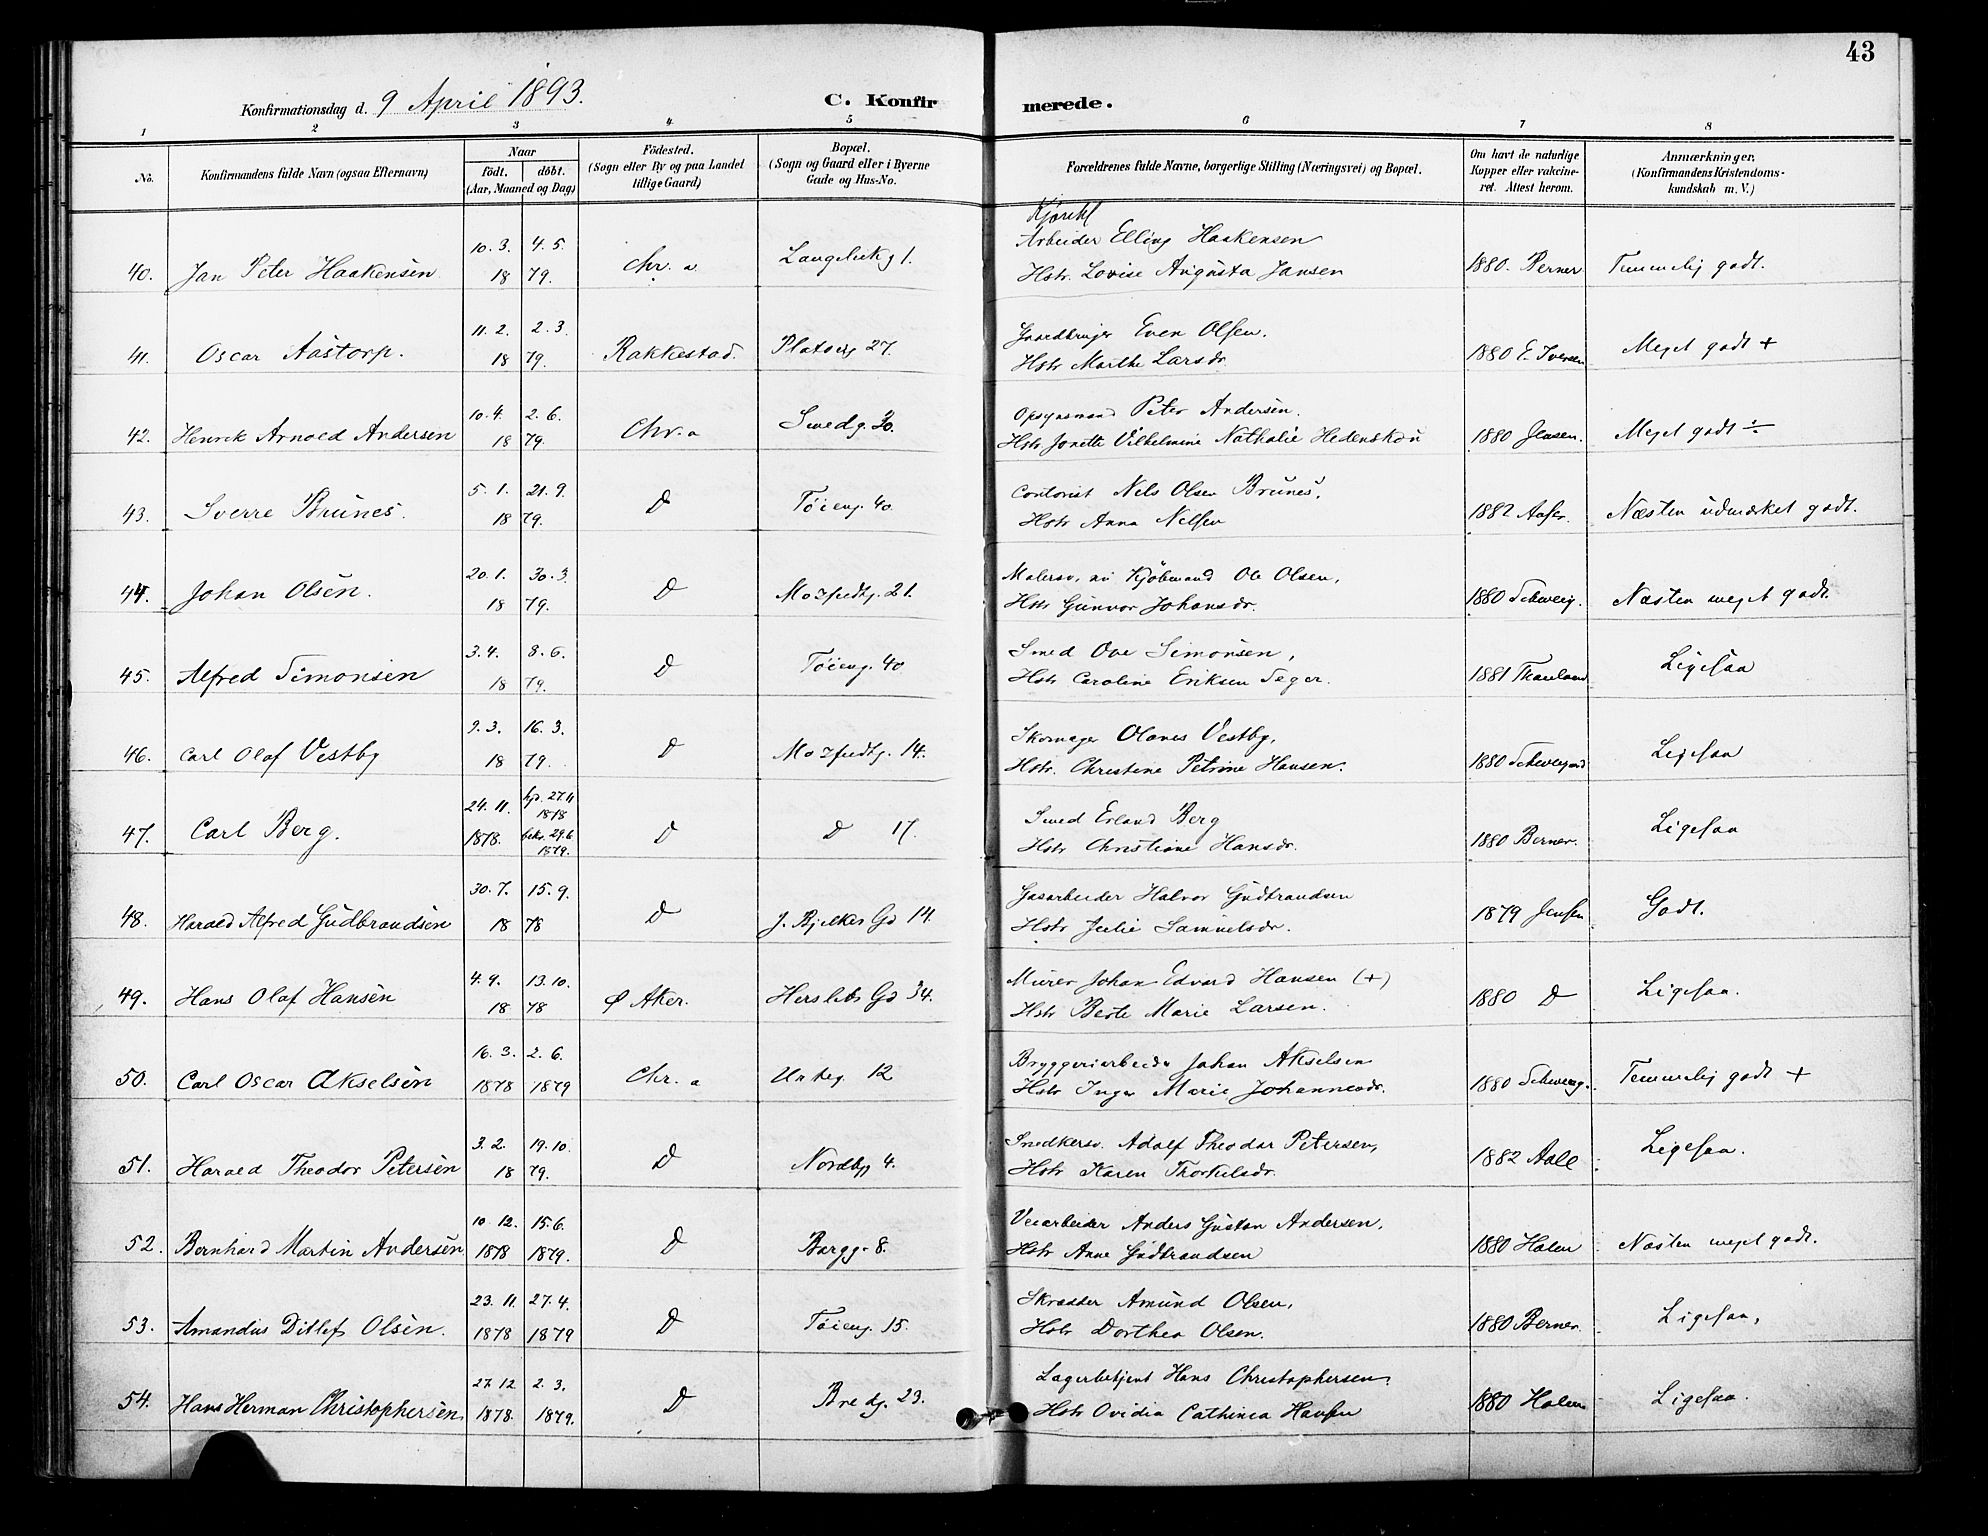 43
Konfirmationsdag d. 9 April 1893.
C. Konfirmerede.
1 2 3 4 5 6 7 8
No. Konfirmandens fulde Navn (ogsaa Efternavn) Naar født. døbt. (Aar, Maaned og Dag) Fødested. (Sogn eller By og paa Landet tillige Gaard) Bopæl. (Sogn og Gaard eller i Byerne Gade og Hus-No. Forældrenes fulde Navne, borgerlige Stilling (Næringsvei) og Bopæl. Om havt de naturlige Kopper eller vaccineret. Attest herom. Anmærkninger. (Konfirmandens Kristendomskundskab m. V.)
40. Jan Peter Haakensen 10. 3. 4. 5. 18 79. Chr.a Langeliekg 1.
Arbeider Elling Haakensen
Hstr. Lovise Augusta Jansen 1880. Berner Temmelig godt.
41. Oscar Aastorp. 11. 2. 2. 3. 18 79. Rakkestad. Platoug 27.
Gaardbruger Even Olsen.
Hstr Marthe Larsdr. 1880 E. Iversen Meget godt +
42. Henrik Arnold Andersen 10. 4. 2. 6. 18 79. Chr.a Smedg. 30.
Opsynsmand Peter Andersen.
Hstr Jonette Vilhelmine Nathalie Hedenskou 1880 Jensen. Meget godt ÷
43. Sverre Brunes. 5. 1. 21. 9. 18 79. D Tøieng. 40.
Contorist Nels Olsen Brunes,
Hstr Anna Nelsen 1882 Aaser. Næsten udmærket godt.
44. Johan Olsen. 20. 1. 30. 3. 18 79. D Mozfeldtg. 21.
Malersv. nu Kjøbmand Ole Olsen,
Hstr Gunvor Johansdr. 1880 Schweig. Næsten meget godt.
45. Alfred Simonsen 3. 4. 8. 6. 18 79. D Tøieng. 40
Smed Ove Simonsen,
Hstr Caroline Eriksen Seger. 1881 Thaulow Ligesaa
46. Carl Olaf Vestby 9. 3. 16. 3. 18 79. D Mozfeldtg. 14.
Skomager Olaves Vestby,
Hstr. Christine Petrine Hansen. 1880 Schweigaard Ligesaa
47. Carl Berg. 24. 11. 1878. hjd. 27.11 1878 bekr. 29.6 1879. D D 17.
Smed Erland Berg
Hstr Christiane Hansdr. 1880 Berner. Ligesaa
48. Harald Alfred Gudbrandsen 30. 7. 15. 9. 18 78 D J. Bjelkes Gd 14.
Gasarbeider Halvor Gudbrandsen
Hstr Julie Samuelsdr. 1879 Jensen Godt.
49. Hans Olaf Hansen 4. 9. 13. 10. 18 78 Ø Aker. Herslebs Gd 34.
Murer Johan Edvard Hansen (+)
Hstr Berte Marie Larsen. 1880 D Ligesaa.
50. Carl Oscar Akselsen 16. 3. 2. 6. 1878 1879 Chr.a Urteg. 12
Bryggeriarbeider Johan Akselsen
Hstr Inger Marie Johannesdr. 1880 Schweig. Temmelig godt +
51. Harald Theodor Petersen 3. 2. 19. 10. 18 79. D Nordbyg 4.
Snedkersv. Adolf Theodor Petersen,
Hstr Karen Thorkelsdr. 1882 Aall Ligesaa.
52. Bernhard Martin Andersen 10. 12. 15. 6. 1878 1879. D Borgg. 8.
Veiarbeider Anders Gustav Andersen,
Hstr Anne Gudbrandsen 1880 Holm Næsten meget godt.
53. Amandus Ditlef Olsen. 23. 11. 27. 4. 1878 1879 D Tøieng. 15.
Skrædder Amund Olsen,
Hstr Dorthea Olsen. 1880 Berner. Ligesaa,
54. Hans Herman Christophersen 27. 12 2. 3. 1878. 1879. D Bredg. 23.
Lagerbetjent Hans Christophersen.
Hstr Ovidia Cathinca Hansen 1880 Holm Ligesaa.